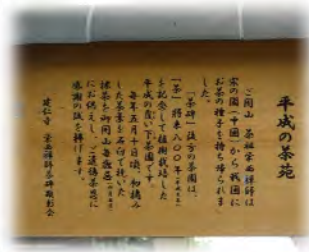 平成の茶苑
ご開山 茶祖栄西禅師は
宋の国(中国)から我国に
お茶の種子を持ち帰られま
した。
「茶碑」後方の茶園は、
「茶」将来八〇〇年
を記念して植樹栽培した
平成の覆い下茶園です。
毎年五月十日頃、初摘み
した茶葉を石臼で挽いた
抹茶を御開山毎歳忌
にお供えし、ご遺徳茶恩に
感謝の誠を捧げます。
建仁寺 栄西禅師茶碑顕彰会